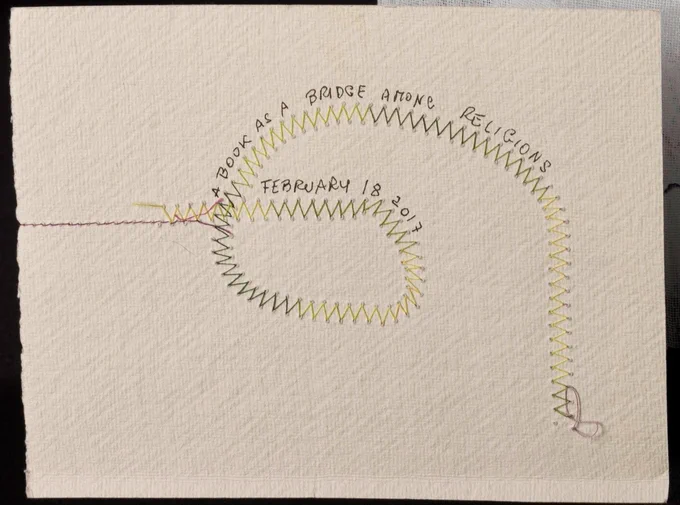 A BOOK AS A BRIDGE AMONG RELIGIONS
FEBRUARY 18 2017